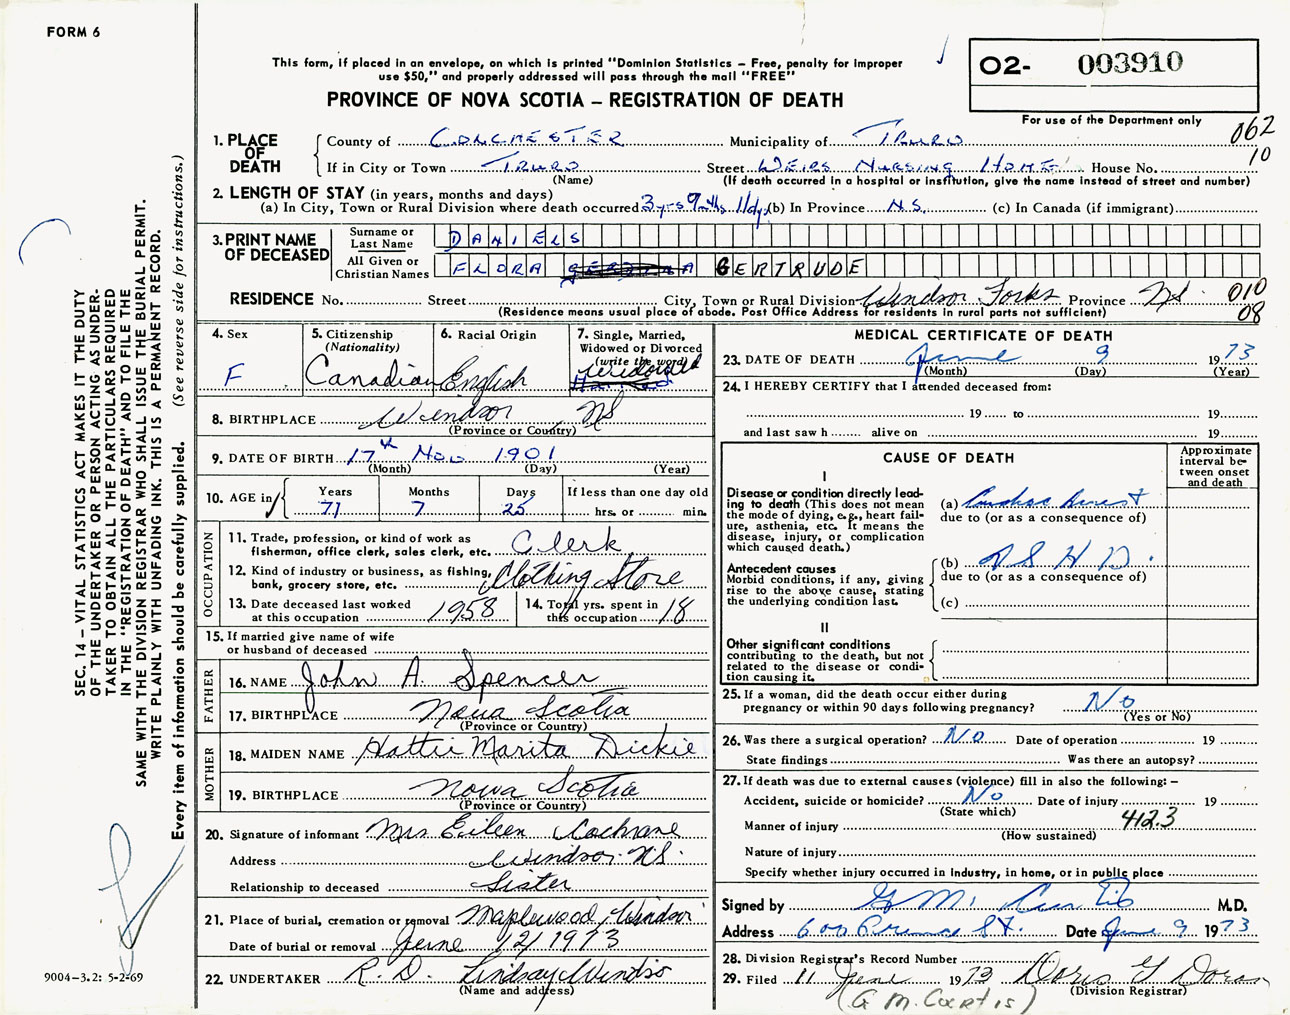 FORM 6
This form, if placed in an envelope, on which is printed "Dominion Statistics – Free, penalty for improper
use $50," and properly addressed will pass through the mail "FREE"
PROVINCE OF NOVA SCOTIA – REGISTRATION OF DEATH
O2- 003910
For use of the Department only
062
10
1. PLACE OF DEATH
County of COLCHESTER Municipality of TRURO
If in City or Town TRURO Street WEIRS NURSING HOME House No.
(Name) (If death occurred in a hospital or institution, give the name instead of street and number)
2. LENGTH OF STAY (in years, months and days)
(a) In City, Town or Rural Division where death occurred 3 yrs 9 mths 11 dy (b) In Province N.S. (c) In Canada (if immigrant)
3. PRINT NAME OF DECEASED
Surname or Last Name DANIELS
All Given or Christian Names FLORA GERTRUDE
RESIDENCE No. Street City, Town or Rural Division Windsor Forks Province NS 010
(Residence means usual place of abode. Post Office Address for residents in rural parts not sufficient) 08
4. Sex F
5. Citizenship (Nationality) Canadian
6. Racial Origin English
7. Single, Married, Widowed or Divorced (write the word) widowed
8. BIRTHPLACE Windsor NS
(Province or Country)
9. DATE OF BIRTH 17th Nov 1901
(Month) (Day) (Year)
10. AGE in Years 71 Months 7 Days 25 If less than one day old
hrs. or min.
OCCUPATION
11. Trade, profession, or kind of work as
fisherman, office clerk, sales clerk, etc. Clerk
12. Kind of industry or business, as fishing,
bank, grocery store, etc. Clothing Store
13. Date deceased last worked
at this occupation 1958
14. Total yrs. spent in
this occupation 18
15. If married give name of wife
or husband of deceased
FATHER
16. NAME John A. Spencer
17. BIRTHPLACE Nova Scotia
(Province or Country)
MOTHER
18. MAIDEN NAME Hattie Marita Dickie
19. BIRTHPLACE Nova Scotia
(Province or Country)
20. Signature of informant Mrs Eileen Cochrane
Address Windsor N.S.
Relationship to deceased Sister
21. Place of burial, cremation or removal Maplewood, Windsor
Date of burial or removal June 12/1973
22. UNDERTAKER R. D. Lindsay Windsor
(Name and address)
MEDICAL CERTIFICATE OF DEATH
23. DATE OF DEATH June 9 1973
(Month) (Day) (Year)
24. I HEREBY CERTIFY that I attended deceased from:
19 to 19
and last saw h alive on 19
CAUSE OF DEATH
Approximate interval between onset and death
I
Disease or condition directly leading to death (This does not
mean the mode of dying, e.g., heart failure, asthenia, etc. It means the
disease, injury, or complication
which caused death.)
(a) Cardiac Arrest
due to (or as a consequence of)
Antecedent causes
Morbid conditions, if any, giving
rise to the above cause, stating
the underlying condition last.
(b) A S H D.
due to (or as a consequence of)
(c)
II
Other significant conditions
contributing to the death, but not
related to the disease or condition causing it.
25. If a woman, did the death occur either during
pregnancy or within 90 days following pregnancy? No
(Yes or No)
26. Was there a surgical operation? No Date of operation 19
State findings Was there an autopsy?
27. If death was due to external causes (violence) fill in also the following: –
Accident, suicide or homicide? No Date of injury 19
(State which)
Manner of injury 412.3
(How sustained)
Nature of injury
Specify whether injury occurred in industry, in home, or in public place
Signed by G M. Curtis M.D.
Address 600 Prince St. Date June 9 1973
28. Division Registrar's Record Number
29. Filed 11 June 1973 Doris Y Doran
(Division Registrar)
(G M. CURTIS)
SEC. 14 – VITAL STATISTICS ACT MAKES IT THE DUTY
OF THE UNDERTAKER OR PERSON ACTING AS UNDER-
TAKER TO OBTAIN ALL THE PARTICULARS REQUIRED
IN THE "REGISTRATION OF DEATH" AND TO FILE THE
SAME WITH THE DIVISION REGISTRAR WHO SHALL ISSUE THE BURIAL PERMIT.
WRITE PLAINLY WITH UNFADING INK. THIS IS A PERMANENT RECORD.
Every item of information should be carefully supplied. (See reverse side for instructions.)
9004-3.2: 5-2-69